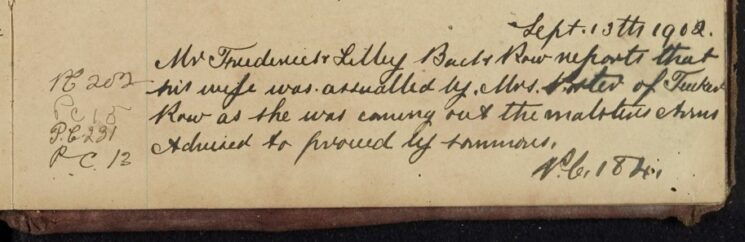 Sept. 13th 1902.
Mr Frederick Lilley Back Row reports that
his wife was assualted by Mrs. Porter of Tucker
Row as she was coming out the malsters Arms
Advised to proceed by sommons.
P.C. 184.
PC 202
PC 15
P.C 231
P.C. 13